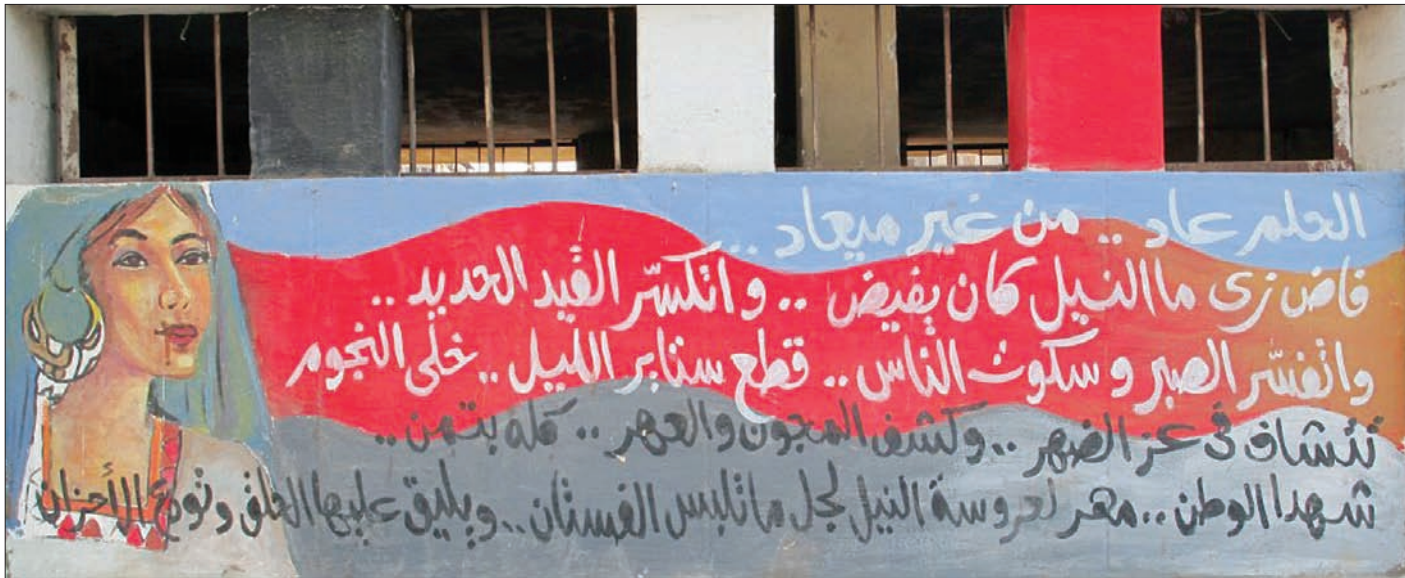 الحلم عاد .. من غير ميعاد ..
فاض زى ما النيل كان يفيض .. و اتكسّر القيد الحديد ..
واتفسّر الصبر و سكوت الناس .. قطع ستاير الليل .. خلى النجوم
تتشاف فى عز الضهر .. وكشف المجون والعهر .. كله بتمن ..
شهدا الوطن .. مهر لعروسة النيل لجل ما تلبس الفستان .. ويليق عليها الحلق وتودع الأحزان